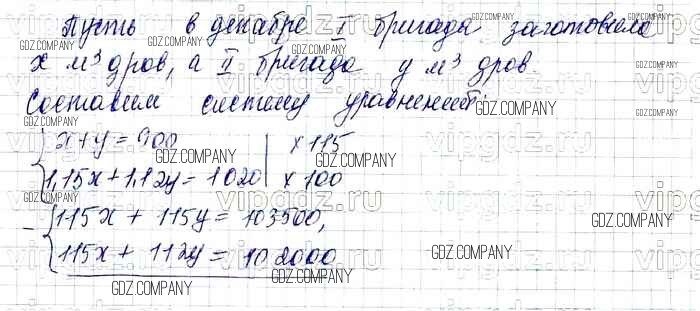 Пусть в декабре I бригада заготовила
x м³ дров, а II бригада y м³ дров.
Составим систему уравнений:
{ x + y = 900 | x 115
1,15x + 1,12y = 1020 | x 100
- { 115x + 115y = 103500,
115x + 112y = 102000
GDZ.COMPANY
vipgdz.ru